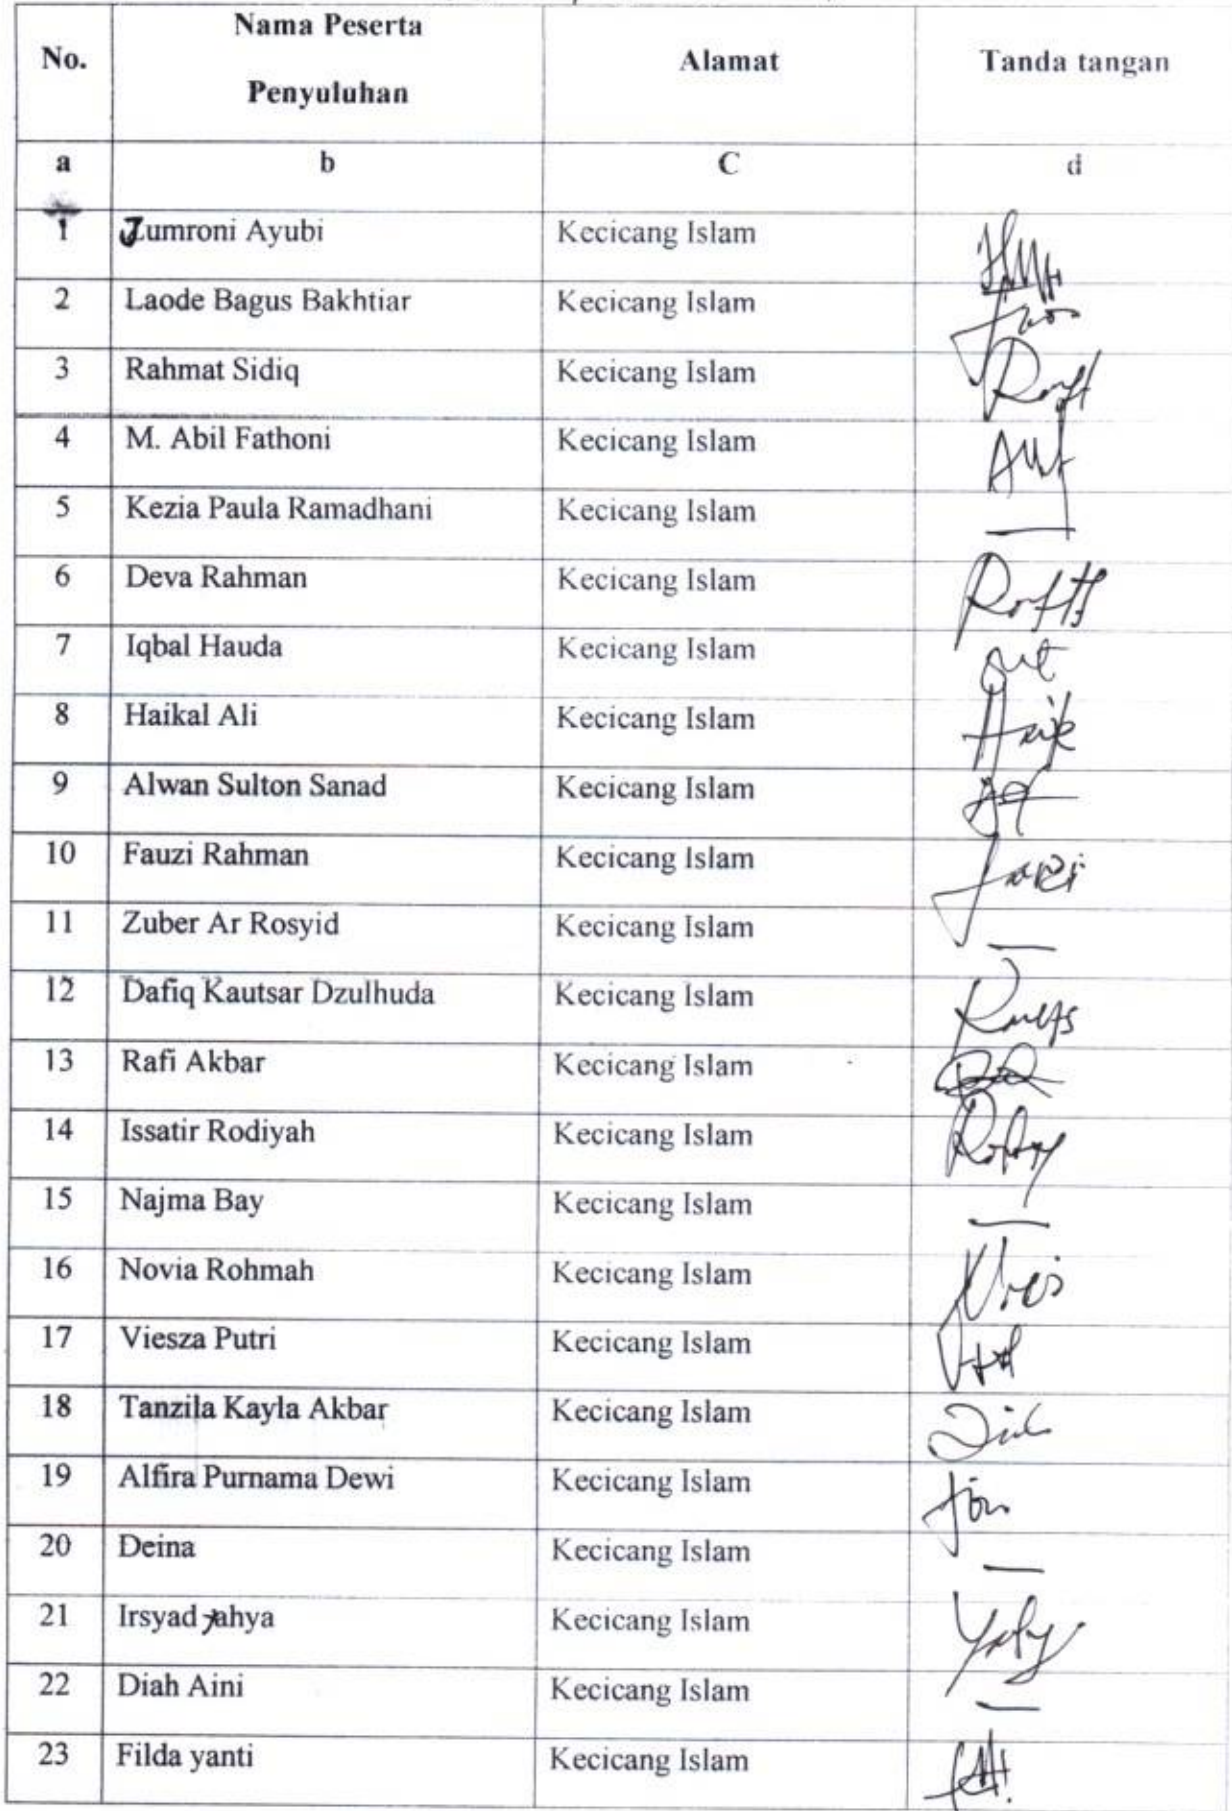 No. Nama Peserta Penyuluhan Alamat Tanda tangan
a b C d
1 Jumroni Ayubi Kecicang Islam
2 Laode Bagus Bakhtiar Kecicang Islam
3 Rahmat Sidiq Kecicang Islam
4 M. Abil Fathoni Kecicang Islam
5 Kezia Paula Ramadhani Kecicang Islam —
6 Deva Rahman Kecicang Islam
7 Iqbal Hauda Kecicang Islam
8 Haikal Ali Kecicang Islam
9 Alwan Sulton Sanad Kecicang Islam
10 Fauzi Rahman Kecicang Islam
11 Zuber Ar Rosyid Kecicang Islam —
12 Dafiq Kautsar Dzulhuda Kecicang Islam
13 Rafi Akbar Kecicang Islam
14 Issatir Rodiyah Kecicang Islam
15 Najma Bay Kecicang Islam —
16 Novia Rohmah Kecicang Islam
17 Viesza Putri Kecicang Islam
18 Tanzila Kayla Akbar Kecicang Islam
19 Alfira Purnama Dewi Kecicang Islam
20 Deina Kecicang Islam —
21 Irsyad yahya Kecicang Islam
22 Diah Aini Kecicang Islam —
23 Filda yanti Kecicang Islam